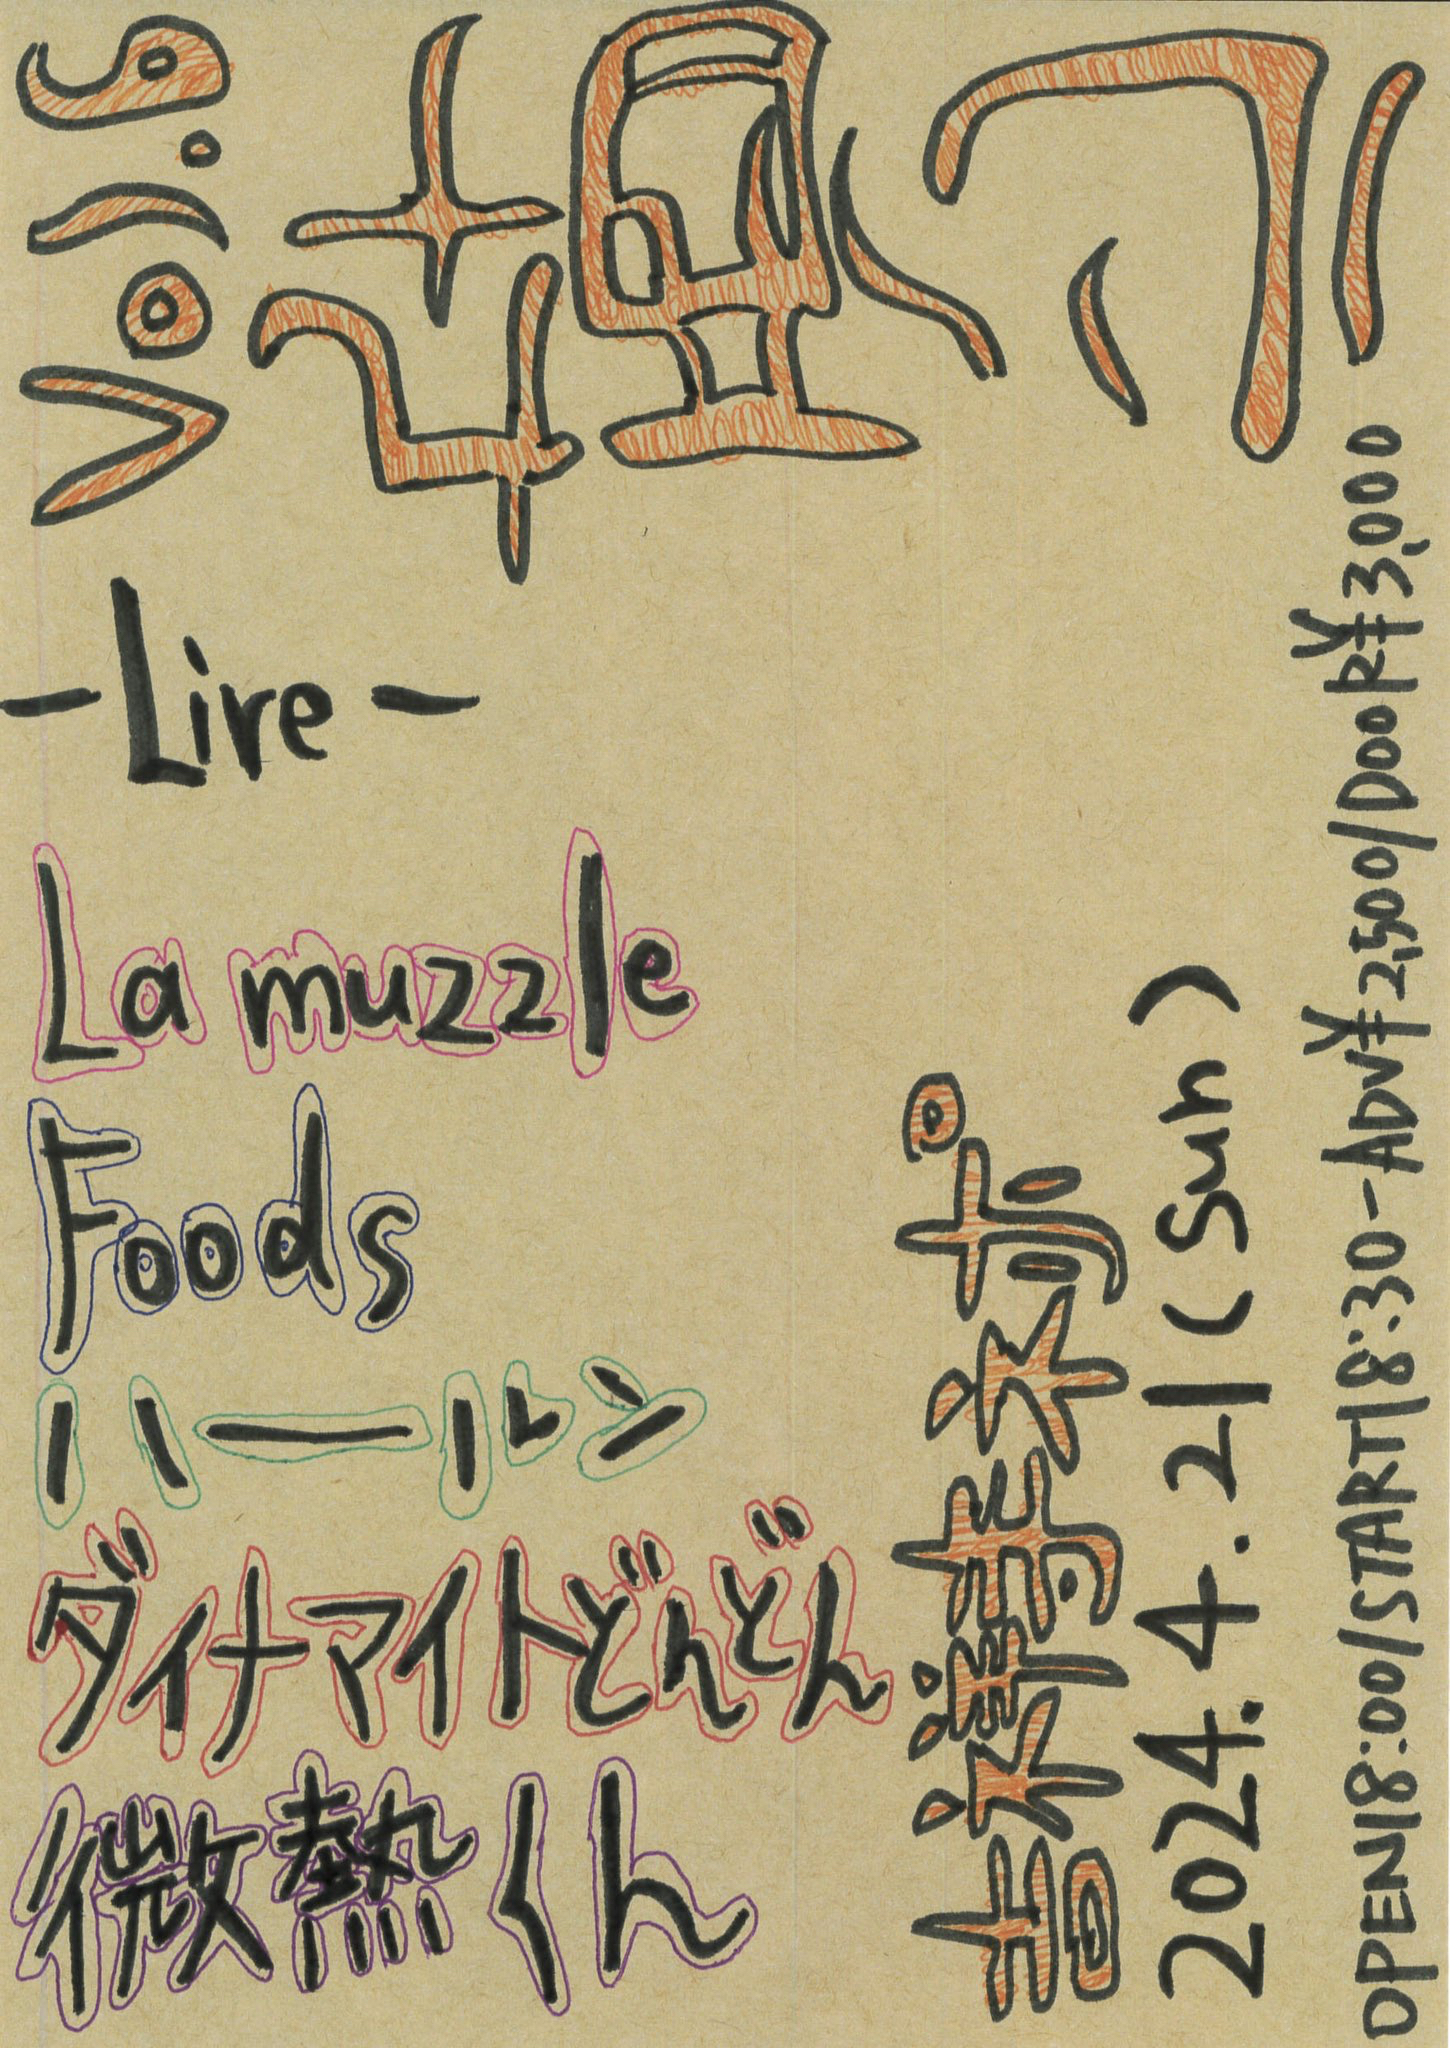 Vol.6
-Live-
La muzzle
Foods
ハールン
ダイナマイトどんどん
微熱くん
吉祥寺ネポ
2024.4.21(Sun)
OPEN18:00/START18:30-ADV¥2,500/DOOR¥3,000